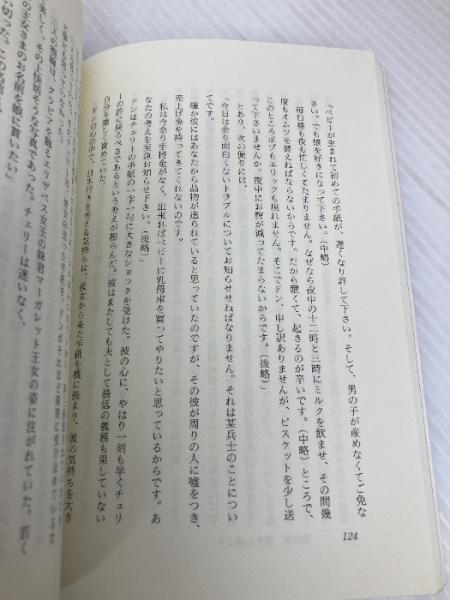 「ベビーが生まれて初めての手紙が、遅くなり許して下さい。そして、男の子が産めなくてご免な
さい。でも娘を好きになって下さい。（中略）
毎日昼も夜も忙しくてたまりません。なぜなら夜中の十二時と三時にミルクを飲ませ、その間幾
度もオムツを替えねばならないからです。だから眠くて、起きるのが辛いです。（中略）ところで、
このところボブもエリックも現れません。そこでドン、申し訳ありませんが、ビスケットを少し送
って下さいませんか。夜中にお腹が減ってたまらないからです。（後略）
とあり、次の便りには、
「今日は余り面白くないトラブルについてお知らせせねばなりません。それは某兵士のことについ
てです。
確か彼にはあなたから品物が送られていると思っていたのですが、その彼が周りの人に嘘をつき、
売上げ金を持ってきてくれないのです。
私は今余り手持金がなく、出来ればベビーに乳母車を買ってやりたいと思っているからです。あ
なたの考えを至急お知らせ下さい。（後略）」
ドンはチェリーの手紙の一字一句に大きなショックを受けた。彼の心に、やはり一刻も早くチェリ
ーの許に戻るべきであるという考えが膨らんだ。彼はまたしても夫として最低の義務も果していない
自分を恥じて責めていた。
ドンの心の中で、日本行きを考える気持ちは、彼女から来た手紙を機に強まり、彼の気持ちを大き
マーガレット王女の姿に注がれていた。若く
美しく、その上快活そうな写真であった。チェリーは迷いなく、
の王女さまのお名前を娘に貰いたい」
124